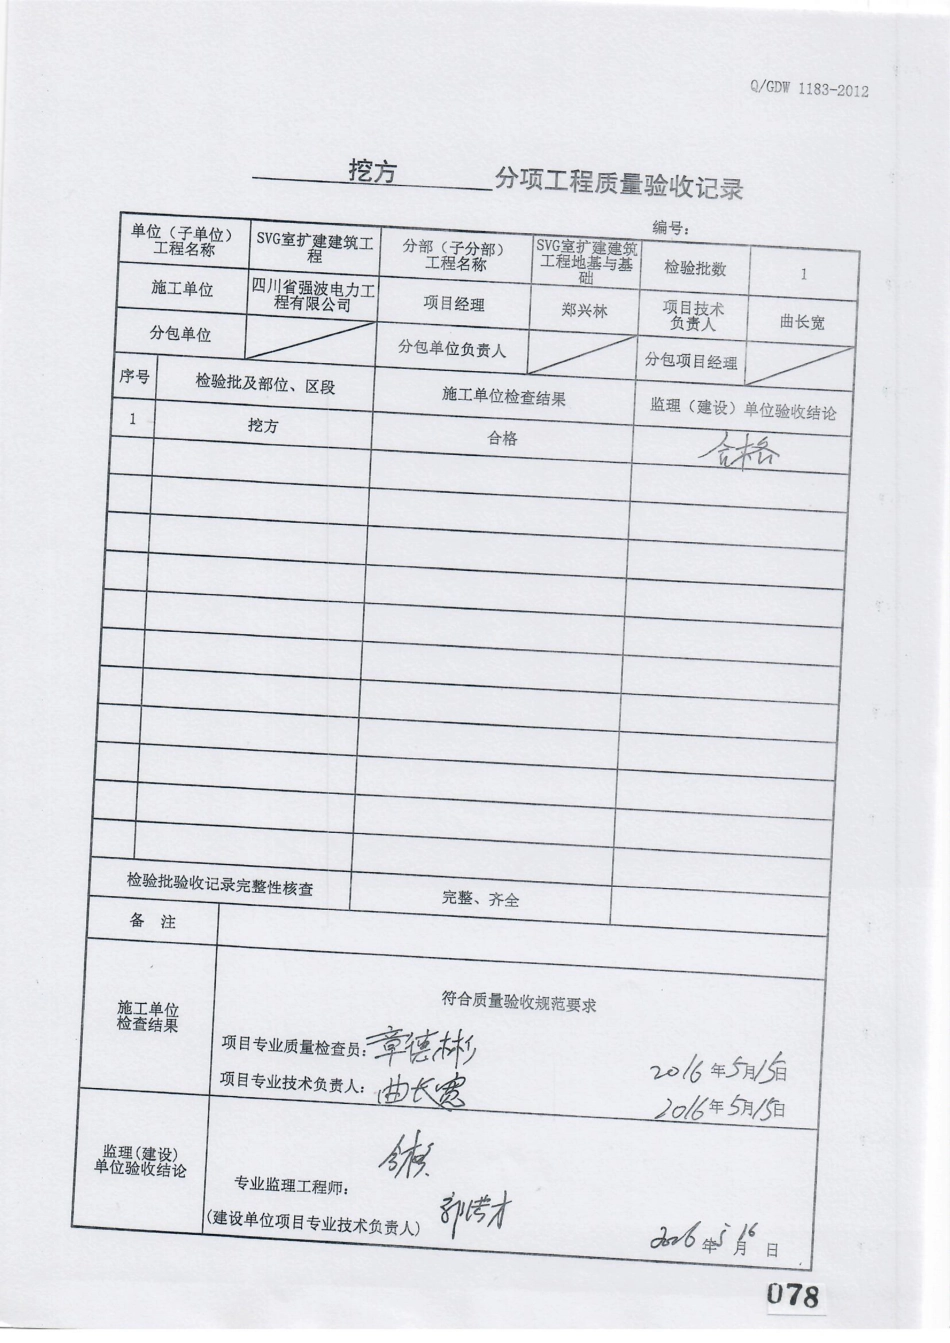 Q/GDW 1183-2012
挖方 分项工程质量验收记录
编号：
单位（子单位）工程名称 SVG室扩建建筑工程 分部（子分部）工程名称 SVG室扩建建筑工程地基与基础 检验批数 1
施工单位 四川省强波电力工程有限公司 项目经理 郑兴林 项目技术负责人 曲长宽
分包单位 分包单位负责人 分包项目经理
序号 检验批及部位、区段 施工单位检查结果 监理（建设）单位验收结论
1 挖方 合格 合格
检验批验收记录完整性核查 完整、齐全
备 注
施工单位检查结果
符合质量验收规范要求
项目专业质量检查员：章德彬 2016年5月15日
项目专业技术负责人：曲长宽 2016年5月15日
监理(建设)单位验收结论
合格
专业监理工程师：
(建设单位项目专业技术负责人) 2016年5月16日
078